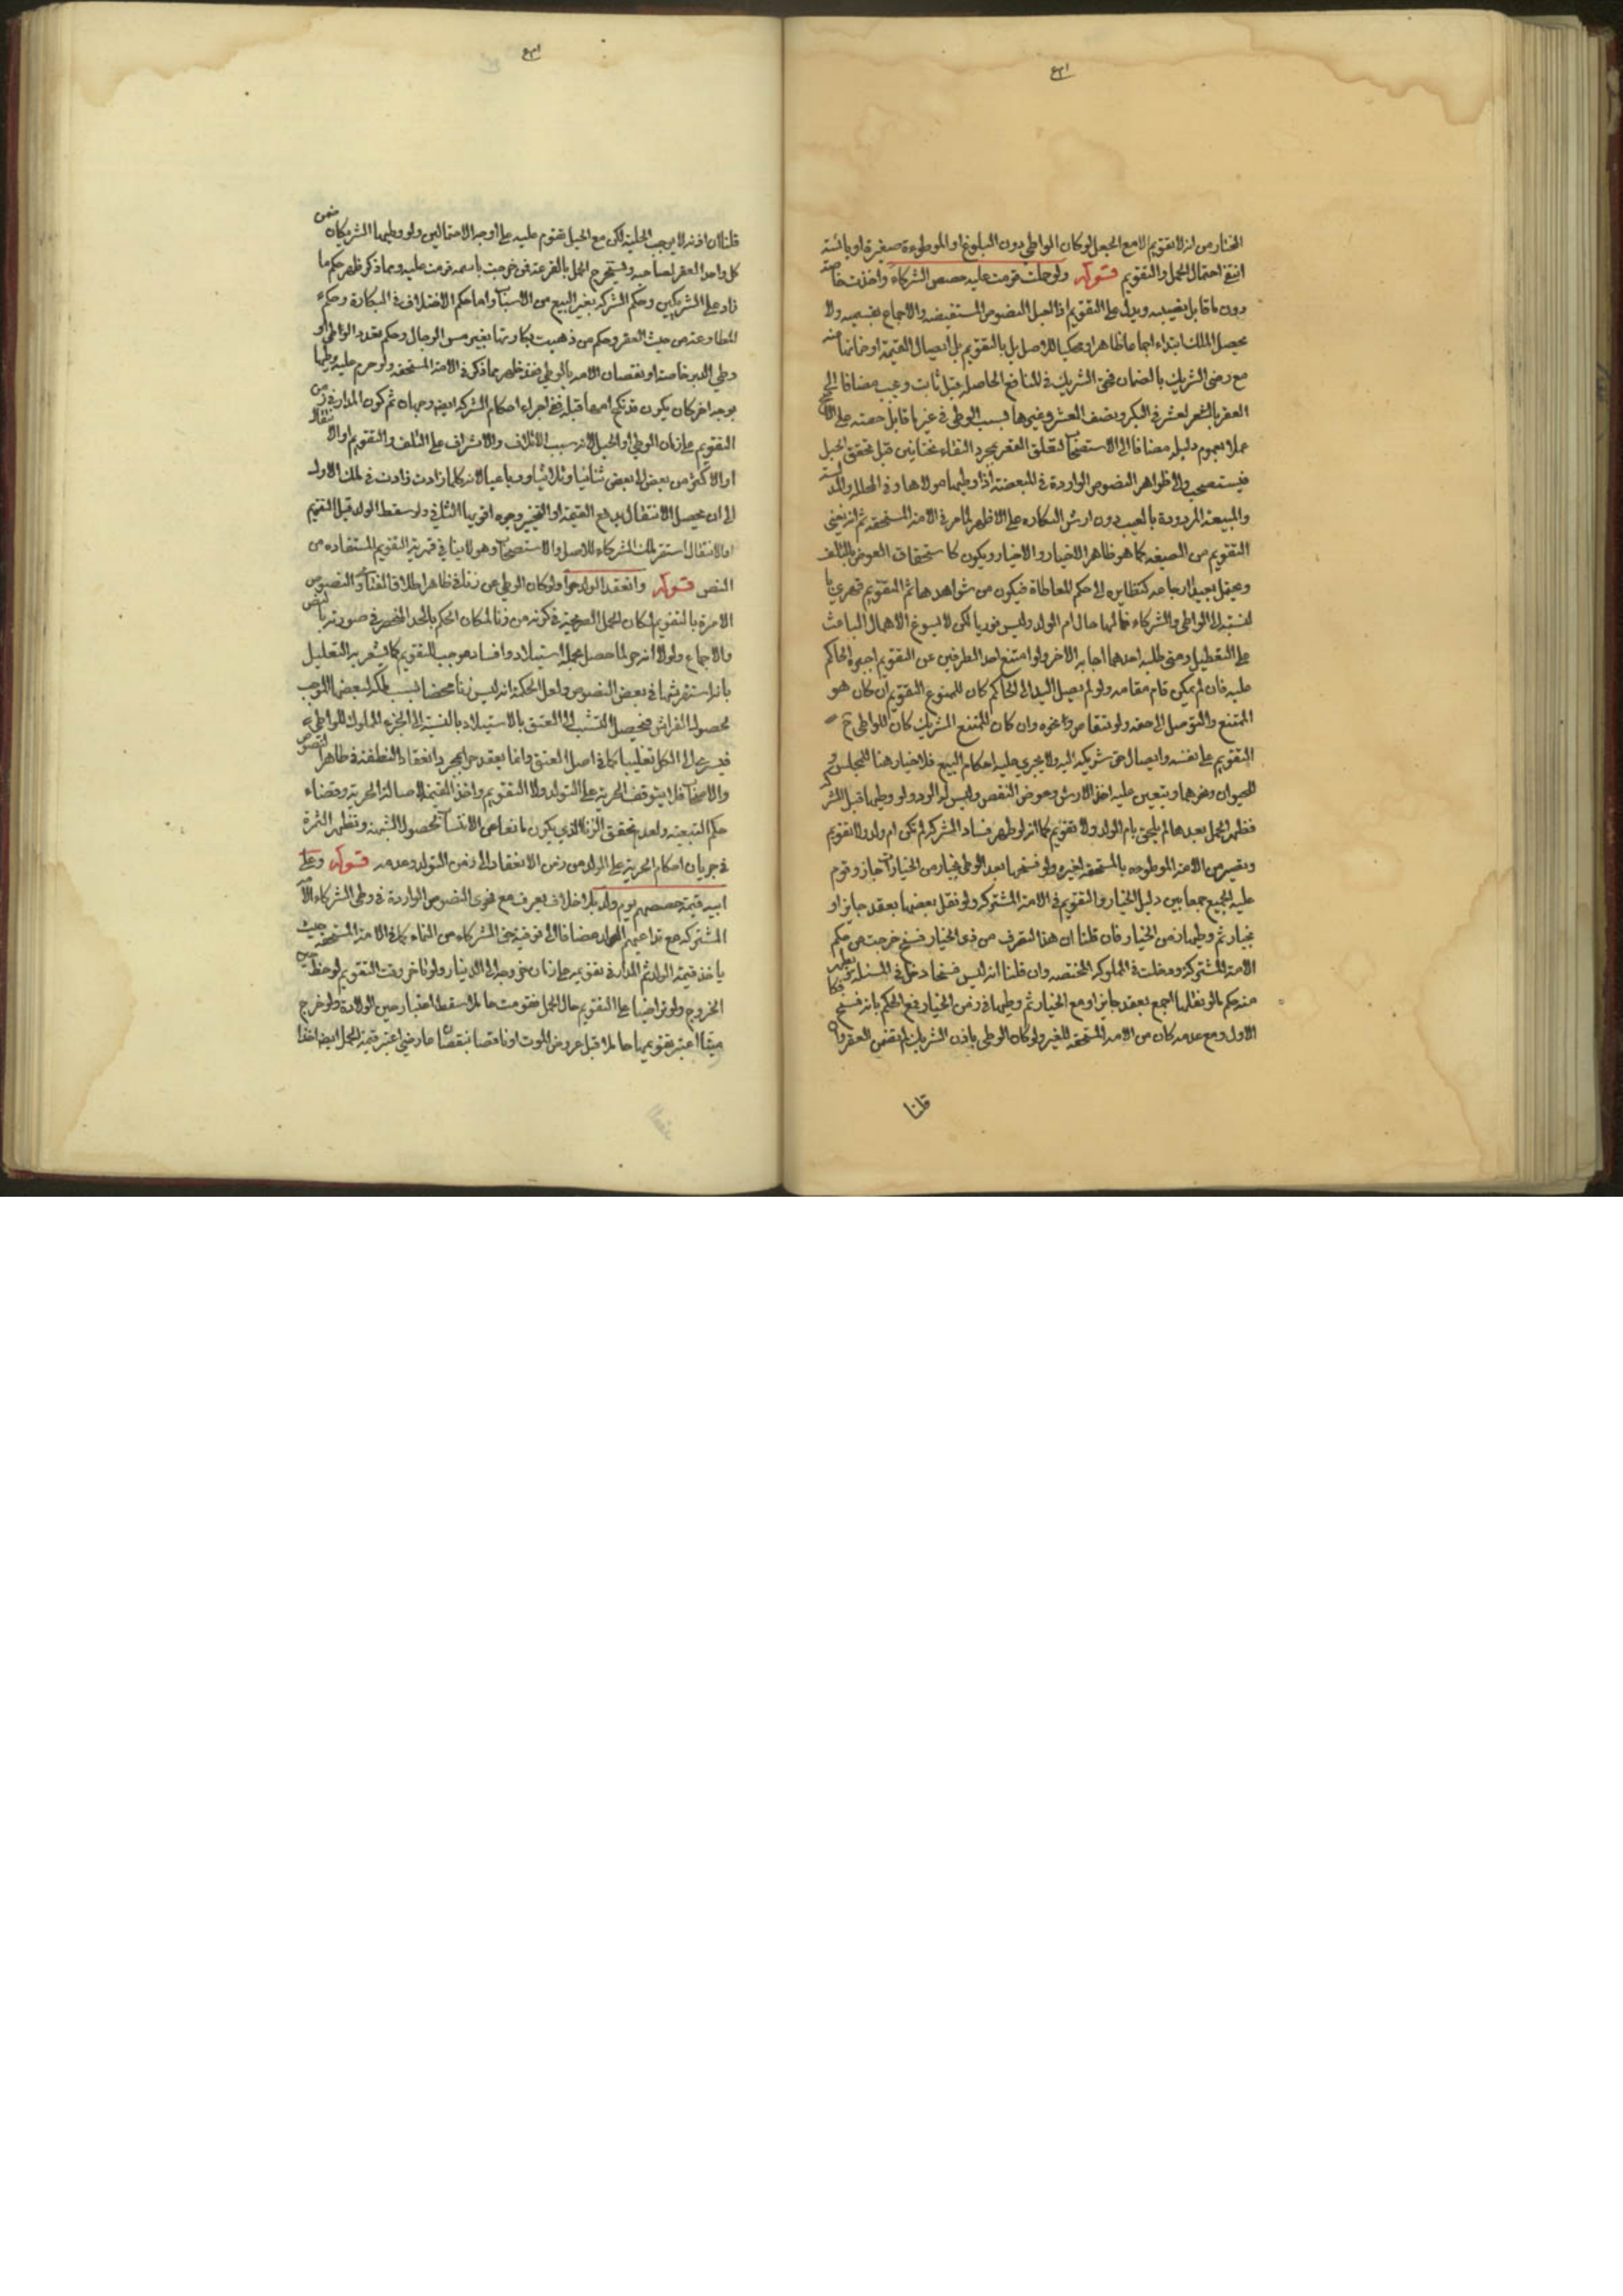 المختار من انه لا تقويم الا مع الحمل لو كان الواطي دون البلوغ او الموطوءة صغيرة او يائسة
انتفى احتمال الحمل والتقويم قوله ولو حملت قومت عليه حصص الشركاء واخذت خاصة
دون ما قابل نصيبه ويدل على التقويم اذا الحبل النصوص المستفيضه والاجماع بقسميه ولا
يحصل الملك ابتداء اجماعا ظاهرا ومحكيا للاصل بل بالتقويم بل ايصال القيمة او ضمانها منه
مع رضى الشريك بالضمان فحق الشريك في المنافع الحاصله قبل ثابت وعيب مضافا الى
العقر بالشعر لعشر في البكر ونصف العشر في غيرها بسبب الوطي في غير ما قابل حصته على
عملا بعموم دليله مضافا الى الاستصحاب لتعلق العقر بمجرد التقاء ختانين قبل تحقق الحبل
فيستصحب والى ظواهر النصوص الواردة في المبعضة اذا وطيها مولاها وفي المحلله والمد
والمبيعة المردودة بالعيب دون ارش البكاره على الاظهر لما مر في الامة المستحقه ثم انه يغني
التقويم من الصيغه كما هو ظاهر الاخبار والاخيار ويكون كاستحقاق العوض بالتالف
ويحتمل بعيدا ارجاعه كنظايره الى حكم المعاطاة فيكون من شواهدها ثم التقويم قهري با
لنسبة الى الواطي والشركاء فمالها حال ام الولد وليس فوريا لكن لا يسوغ الاهمال الباعث
على التعطيل ومتى طلبه احدهما اجابه الاخر ولو امتنع احد الطرفين عن التقويم اجبره الحاكم
عليه فان لم يمكن قام مقامه ولو لم يصل اليد الى الحاكم كان للممنوع التقويم ان كان هو
الممتنع والتوصل الى حقه ولو تقاصا ونحوه وان كان الممتنع الشريك كان للواطي ح
التقويم على نفسه وايصال حق شريكه اليه ولا يجري عليه احكام البيع فلا خيار هنا للمجلس و
للحيوان ونحوهما ويتعين عليه اخذ الارش وعوض النقص وليس له الرد ولو وطيها قبل الشر
فظهر الحمل بعدها لم يلحق بام الولد ولا تقويم كما انه لو ظهر فساد الشركه لم تكن ام ولد ولا تقويم
وتصير من الامة الموطوءه بالمستحقه لغيره ولو فسخها بعد الوطي بخيار من الخيارات جاز وقوم
عليه الجميع جمعا بين دليل الخيار والتقويم في الامة المشتركه ولو نقل بعضها بعقد جايز او
بخيار ثم وطيها زمن الخيار فان قلنا ان هذا التصرف من ذي الخيار فسخ خرجت من حكم
الامة المشتركة ودخلت في المملوكه المختصه وان قلنا انه ليس فسخا دخل في المسئلة ويظهر
منه حكم ما لو نقلها الجمع بعقد جايز او مع الخيار ثم وطيها في زمن الخيار فمع الحكم بانه فسخ فكا
الاول ومع عدمه كان من الامه المستحقه للغير ولو كان الوطي باذن الشريك لم يقتض العقر
قلنا
قلنا ان اذنه لا يوجب الحلية لكن مع الحبل تقوم عليه على اوجه الاحتمالين ولو وطيها الشريكان ضمن
كل واحد العقر لصاحبه ويستخرج الحمل بالقرعة فمن خرجت باسمه قومت عليه ومما ذكر ظهر حكم ما
زاد على الشريكين وحكم الشركه بغير البيع من الاسباب واما حكم الاختلاف في البكارة وحكم
المطاوعة من حيث العقر وحكم من ذهبت بكارتها بغير مس الرجال وحكم تعدد الواطي او
وطي الدبر خاصة او نقصان الامه بالوطي فقد ظهر مما ذكر في الامة المستحقه ولو حرم عليه وطيها
بوجه اخر كان يكون قد نكح امها قبله ففي اجراء احكام الشركه ايضا وجهان ثم كون المدار في زمن
التقويم على زمان الوطي او الحبل لانه سبب الاتلاف والاشراف على التلف والتقويم او الانتقال
او الاكثر من بعض الى بعض ثنائيا وثلاثيا ورباعيا لانه كلما زادت زادت في ملك الاول
الى ان يحصل الانتقال بدفع القيمة او التخيير وجوه اقويها الثاني ولو سقط الولد قبل التقويم
او الانتقال استقر ملك الشركاء للاصل والاستصحاب وهو لا ينافي قهرية التقويم المستفاده من
النص قوله وانعقد الولد حرا ولو كان الوطي عن زنا في ظاهر اطلاق الفتاوى والنصوص
الامرة بالتقويم لمكان الحمل الصريحة في كونه من زنا لمكان الحكم بالحد المنحصر في صورته بالنص
والاجماع ولولا انه حر لما حصل بحمله استيلاد وافساد موجب للتقويم كما يشعر به التعليل
بانه استفرشها في بعض النصوص ولعل الحكمة انه ليس زنا محضا بسبب ملكه لبعضها الموجب
لحصول الفراش فيحصل التشبث الى العتق بالاستيلاد بالنسبة الى الجزء المملوك للواطي
فيسرى الى الكل تغليبا كما في اصل العتق وانما ينعقد حرا بمجرد انعقاد النطفة في ظاهر النصوص
والاصحاب فلا يتوقف الحرية على التولد ولا التقويم واخذ القيمة لاصالة الحرية وقضاء
حكم التبعية ولعدم تحقق الزنا الذي يكون مانعا عن الانتساب لحصول الشبهة وتظهر الثمرة
في جريان احكام الحرية على الولد من زمن الانعقاد الى زمن التولد وعدمه قوله وعلى
ابيه قيمة حصصهم يوم ولد بلا خلاف يعرف مع فحوى النصوص الواردة في وطي الشركاء الامه
المشتركه مع تداعيهم الولد مضافا الى توفية حق الشركاء من النماء كما في الامة المستحقه حيث
ياخذ قيمة الولد ثم المدار في تقويمه على زمان خروجه الى الدنيا ولو تاخر وقت التقويم لوحظ حين
الخروج ولو تراضيا على التقويم حال الحمل فقومت حاملا سقط اعتبار حين الولادة ولو خرج
ميتا اعتبر تقويمها حاملا قبل عروض الموت او ناقصا بنقصان عارضي اعتبر قيمة الحمل ايضا اخذا